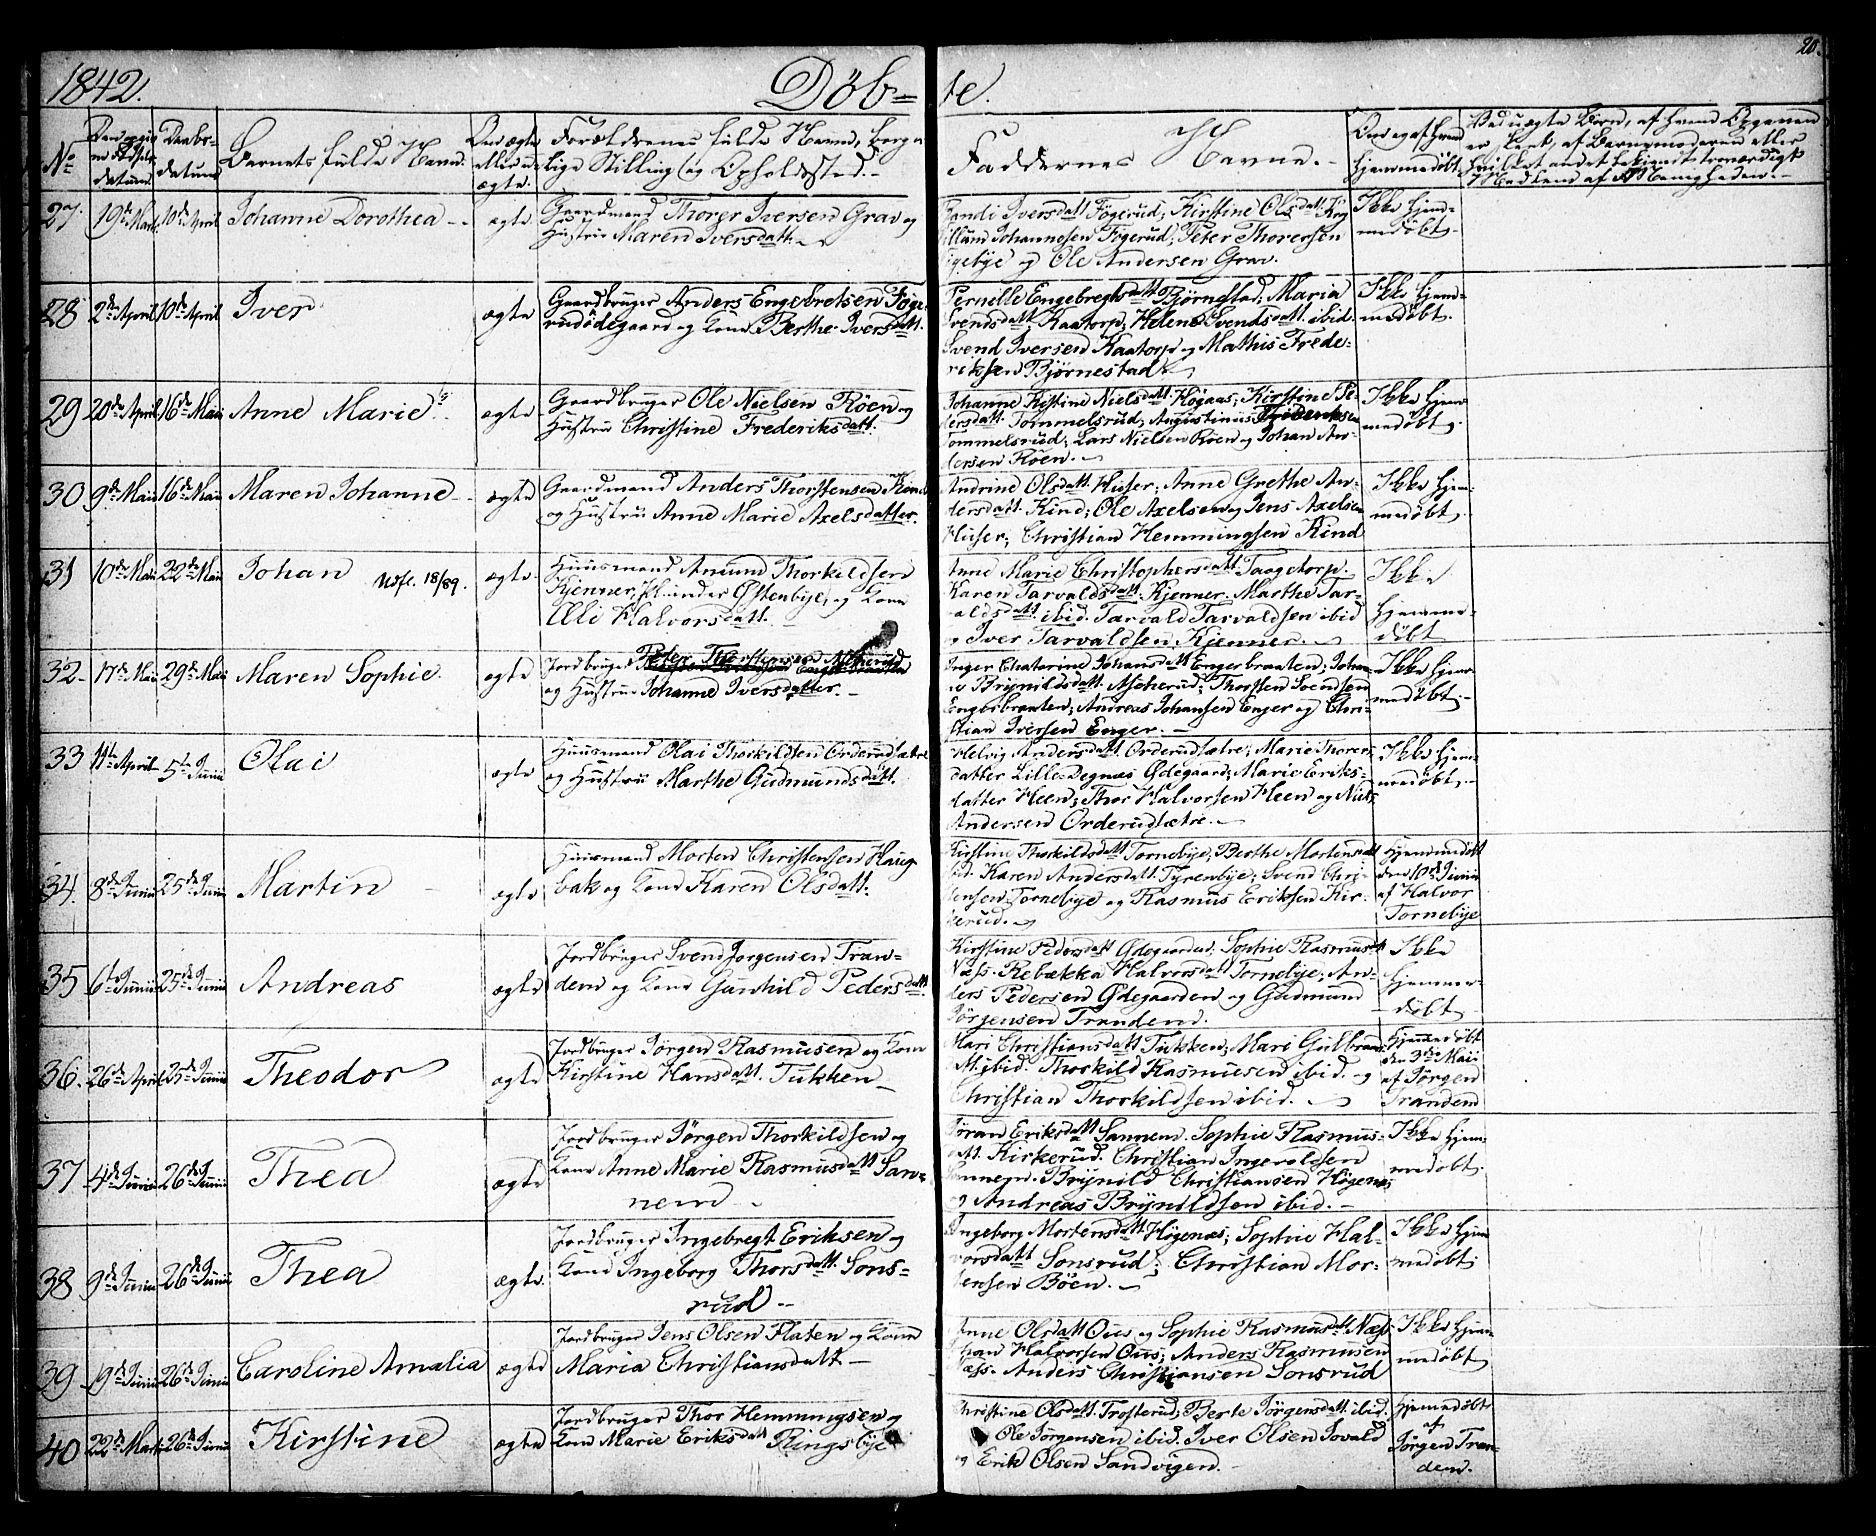 1842.
Döb=
te.
20.
No
datum
Daabs-
datum
Barnets fulde Navn.
ægte.
Forældrenes fulde Navne, borger
lige Stilling og Opholdssted.
Faddernes Navne.
27. 19de Marts 10de April Johanne Dorothea ægte Gaardmand Thorer Iversen Grav og
Hustrue Maren Iversdatt.
Randi Iversdatt Fögerud; Kirstine Olsdatt.
Johannesen Fögerud; Peter Thorersen
og Ole Andersen Grav.
Ikke hjem-
medøbt.
28 2de April 10de April Iver ægte Gaardbruger Anders Engebretsen Föge-
rudödegaard og Kone Berthe Iversdatt.
Pernille Engebregtsdatt Björnestad; Maria
Svendsdatt. Kaatorp; Helene Svendsdatt. ibid.
Svend Iversen Kaatorp og Mathis Frede-
riksen Björnestad
Ikke hjem-
medøbt.
29 20de April 16de Mai Anne Marie ægte Gaardbruger Ole Nielsen Röen og
Hustru Christine Frederiksdatt.
Johanne Kistine Nielsdatt Högaas; Kirstine Pe-
dersdatt. Tommelsrud; Augustinus Frideriksen
Tommelsrud; Lars Nielsen Röen og Johan An-
dersen Röen.
Ikke hjem
medøbt.
30 9de Mai 16de Mai Maren Johanne ægte Gaardmand Anders Thorstensen Kind
og Hustru Anne Marie Axelsdatter.
Andrine Olsdatt Huser; Anne Grethe An-
dersdatt. Kind; Ole Axelsen og Jens Axelsen
Huser; Christian Hemmingsen Kind
Ikke hjem-
medøbt.
31 10de Mai 22de Mai Johan Udfl. 18/89. ægte Huusmand Amund Thorkildsen
Kjenner, under Østenbye, og Kone
Elli Halvorsdatt.
Anne Marie Christophersdatt. Taagetorp.
Karen Tarvaldsdatt. Kjenner. Marthe Tar-
valdsdatt ibid. Tarvald Tarvaldsen ibid
og Iver Tarvaldsen Kjenner.
Ikke
hjemme-
døbt
32 17de Mai 29de Mai Maren Sophie. ægte Jordbruger Peter Thorstensen
og Hustru Johanne Iversdatter.
Inger Chatarine Johansdatt Engerbraaten; Johan-
ne Brynildsdatt. Askerud; Thorsten Svendsen
Engerbraaten; Andreas Johansen Enger og Chri-
stian Iversen Enger.
Ikke hjem-
medøbt.
33 11te April 5te Junii Olai ægte Huusmand Olai Thorkildsen Orderudsætre
og Hustru Marthe Gudmundsdatt.
Helvig Andersdatt. Orderudsætre; Marie Thorers-
datter Lille-Degnæs Ødegaard; Marie Eriks-
datter Heen; Thor Halvorsen Heen og Niels
Andersen Orderudsætre.
Ikke hjem-
medøbt.
34. 8de Junii 25de Junii Martin ægte Huusmand Morten Christensen Haug
bak og Kone Karen Olsdatt.
Kirstine Thorkildsdatt Tornebye; Berthe Mortensdatt
ibid. Karen Andersdatt. Tyrenbye; Svend Chri-
stensen Tornebye og Rasmus Eriksen Kir-
kerud.
Hjemmedøbt
den 10de Junii
af Halvor
Tornebye
35 6te Junii 25de Junii Andreas ægte Jordbruger Svend Jorgensen Tran-
dem og Kone Gunhild Pedersdatt
Kirstine Pedersdatt Ødegaarden; Sophie Rasmusdt
Næss. Rebækka Halvorsdatt Tornebye; An-
ders Pedersen Ødegaarden og Gudmund
Jörgensen Trandem.
Ikke
hjemme-
døbt
36. 26de April 25de Junii Theodor ægte Jordbruger Jörgen Rasmusen og Kone
Kirstine Hansdatt. Tukken
Mari Christiansdatt Tukken; Mari Gulbrans-
dt. ibid. Thorkild Rasmusen ibid. og
Christian Thorkildsen ibid.
Hjemmedøbt
den 3die Mai
af Jörgen
Trandem
37 4de Junii 26de Junii Thea ægte Jordbruger Jörgen Thorkildsen og
Kone Anne Marie Rasmusdatt San-
nem
Jöran Eriksdatt Sannem. Sophie Rasmus-
datt. Kirkerud. Christian Ingevaldsen
Sannem. Brynild Christiansen Högenæs
og Andreas Brynildsen ibid.
Ikke hjem-
medøbt.
38 9de Junii 26de Junii Thea ægte. Jordbruger Ingebregt Eriksen og
Kone Ingeborg Thorsdatt. Sons-
rud
Ingeborg Mortensdatt. Högenæs; Sophie Hal-
vorsdatt Sonsrud; Christian Mor-
tensen Böen.
Ikke hjem
medøbt.
39 19de Junii 26de Junii Caroline Amalia ægte Jordbruger Jens Olsen Flaten og Kone
Maria Christiansdatt
Anne Olsdatt Ous og Sophie Rasmusdatt. Næss
Johan Halvorsen Ous; Anders Rasmusen
Næss. Anders Christiansen Sonsrud
Ikke hjem-
medøbt
40 22de Marts 26de Junii Kirstine ægte Jordbruger Thor Hemmingsen og
Kone Marie Eriksdatt Ringsbye
Christine Olsdatt. Trosterud; Berte Jörgensdatt. ibid.
Ole Jörgensen ibid. Iver Olsen Sovald
og Erik Olsen Sandvigen.
Hjemmedøbt
af
Jörgen Tran-
dem.